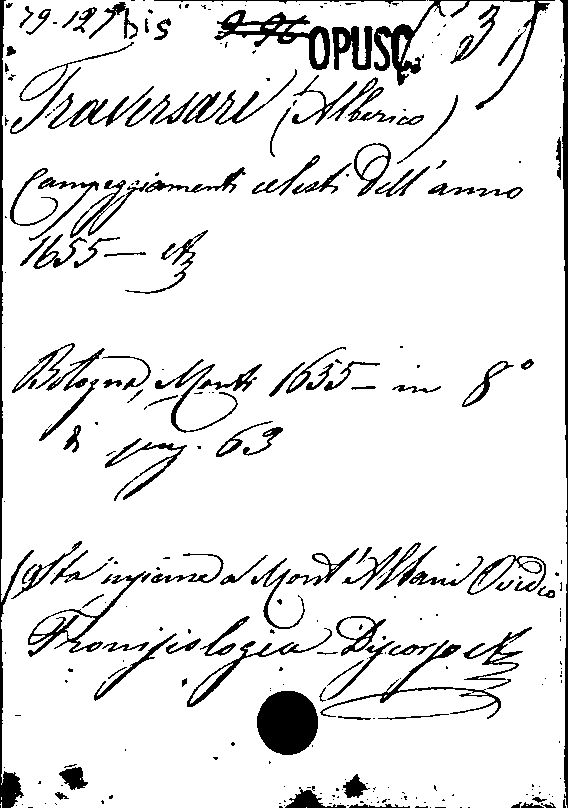 79.127 bis 9.96 OPUSC. (31)
Traversari (Alberico)
Campeggiamenti celesti dell'anno
1655 — etc
Bologna, Monti 1655 — in 8°
di pag. 63
(Sta insieme a Mont'Albani Ovidio
Fronisiologia - Discorso etc